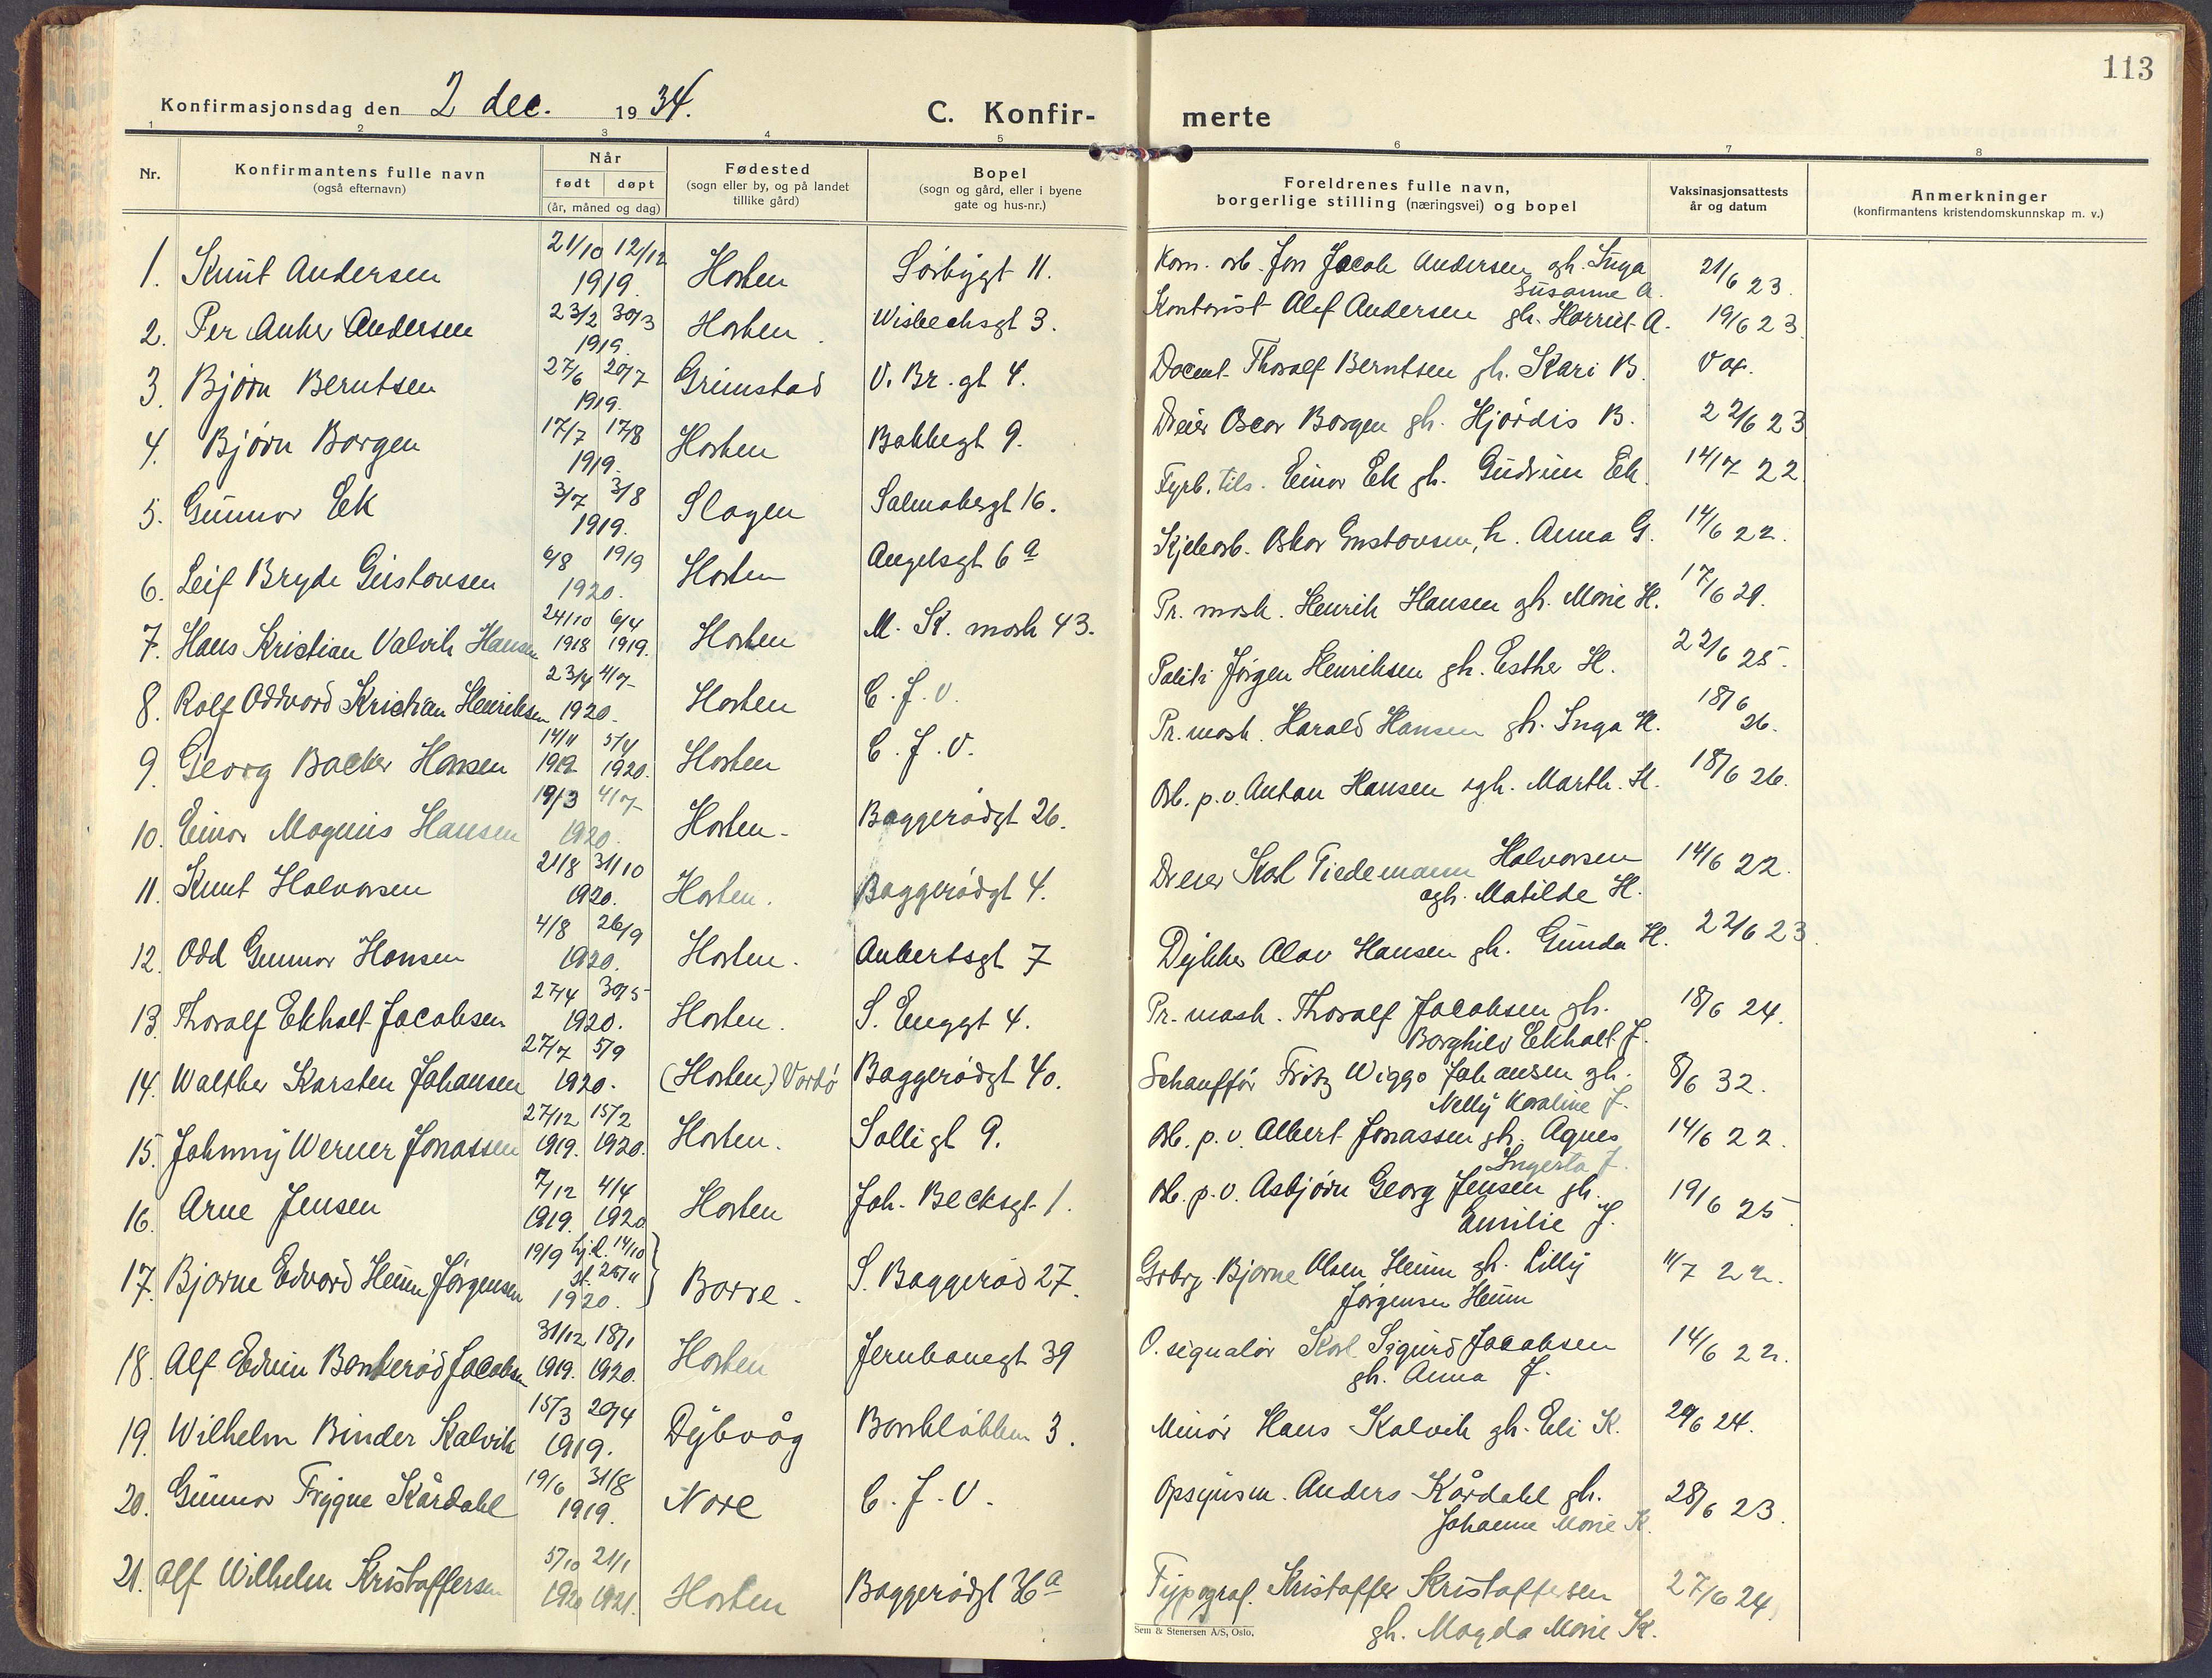 113
Konfirmasjonsdag den 2 dec. 1934.
C. Konfir- merte
1 2 3 4 5 6 7 8
Nr.
Konfirmantens fulle navn
(også efternavn)
Når
født døpt
(år, måned og dag)
Fødested
(sogn eller by, og på landet
tillike gård)
Bopel
(sogn og gård, eller i byene
gate og hus-nr.)
Foreldrenes fulle navn,
borgerlige stilling (næringsvei) og bopel
Vaksinasjonsattests
år og datum
Anmerkninger
(konfirmantens kristendomskunnskap m. v.)
1. Knut Andersen 21/10 12/12 1919. Horten Sörbygt 11. Kom. arb. Jon Jacob Andersen gh. Inga Susanne A. 21/6 23.
2. Per Anker Andersen 23/2 30/3 1919. Horten. Wisbechsgt 3. Kontorist Alf Andersen gh. Harriet A. 19/6 23
3. Bjørn Berntsen 27/6 20/7 1919. Grimstad V. Br. gt 4. Docent Thoralf Berntsen gh. Kari B. Vax.
4. Bjørn Borgen 17/7 17/8 1919. Horten Bakkegt 9. Dreier Oscar Borgen gh. Hjördis B. 22/6 23
5. Gunnar Ek 3/7 3/8 1919. Slagen Salmabergt 16. Fyrb. tils. Einar Ek gh. Gudrun Ek. 14/7 22
6. Leif Bryde Gustavsen 6/8 19/9 1920. Horten Angelsgt 6 a Kjelearb. Oskar Gustavsen, h. Anna G. 14/6 22.
7. Hans Kristian Valvik Hansen 24/10 1918 6/4 1919. Horten M. K. mosk 43. Pr. mask. Henrik Hansen gh. Marie H. 17/6 29.
8. Rolf Oddvard Kristian Henriksen 23/4 4/7 1920. Horten C. J. V. Politi Jörgen Henriksen gh. Esther H. 22/6 25.
9. Georg Backer Hansen 14/11 1919 5/4 1920. Horten C. J. V. Pr. mask. Harald Hansen gh. Inga H. 18/6 26.
10. Einar Magnus Hansen 19/3 4/7 1920. Horten. Baggerødgt 26. Arb. p. v. Anton Hansen ogh. Marth. H. 18/6 26.
11. Knut Halvorsen 21/8 31/10 1920. Horten. Baggerødgt 4. Dreier Karl Tiedemann Halvorsen ogh. Matilde H. 14/6 22.
12. Odd Gunnar Hansen 4/8 26/9 1920. Horten. Aubertsgt 7 Dykker Olav Hansen gh. Gunda H. 22/6 23.
13. Thoralf Ekholt Jacobsen 27/4 30/5 1920. Horten. S. Enggt 4. Pr. mask. Thoralf Jacobsen gh. Borghild Ekholt J. 18/6 24.
14. Walther Karsten Johansen 27/7 5/9 1920. (Horten) Vardø Baggerødgt 40. Schauffør Fritz Wiggo Johansen gh. Nelly Karoline J. 8/6 32.
15. Johnny Werner Jonassen 27/12 1919. 15/2 1920. Horten. Solligt 9. Arb. p. v. Albert Jonassen gh. Agnes J. 14/6 22.
16. Arne Jensen 7/12 1919. 4/4 1920 Horten Joh. Becksgt 1. Arb. p. v. Asbjørn Georg Jensen gh. Emilie J. 19/6 25.
17. Bjarne Edvard Heum Jörgensen 19/9 hj.d. 14/10 st. 26/11 1920. Borre. S. Baggerød 27. Bjarne Olsen Heum gh. Lilly Jörgensen Heum 11/7 22.
18. Alf Edvin Bankerød Jacobsen 31/12 1919. 18/1 1920. Horten Jernbanegt 39 O. signalör Karl Sigurd Jacobsen gh. Anna J. 14/6 22.
19. Wilhelm Binder Kalvik 15/3 20/4 1919. Dybvåg Bankløkken 3. Minör Hans Kalvik gh. Eli K. 29/6 24.
20. Gunnar Trygve Kårdahl 19/6 31/8 1919. Nore C. J. V. Opsynsm. Anders Kårdahl gh. Johanne Marie K. 28/6 23.
21. Alf Wilhelm Kristoffersen 5/10 1920 21/1 1921. Horten Baggerødgt 36 a Typograf. Kristoffer Kristoffersen gh. Magda Marie K. 27/6 24.
Sem & Stenersen A/S, Oslo.